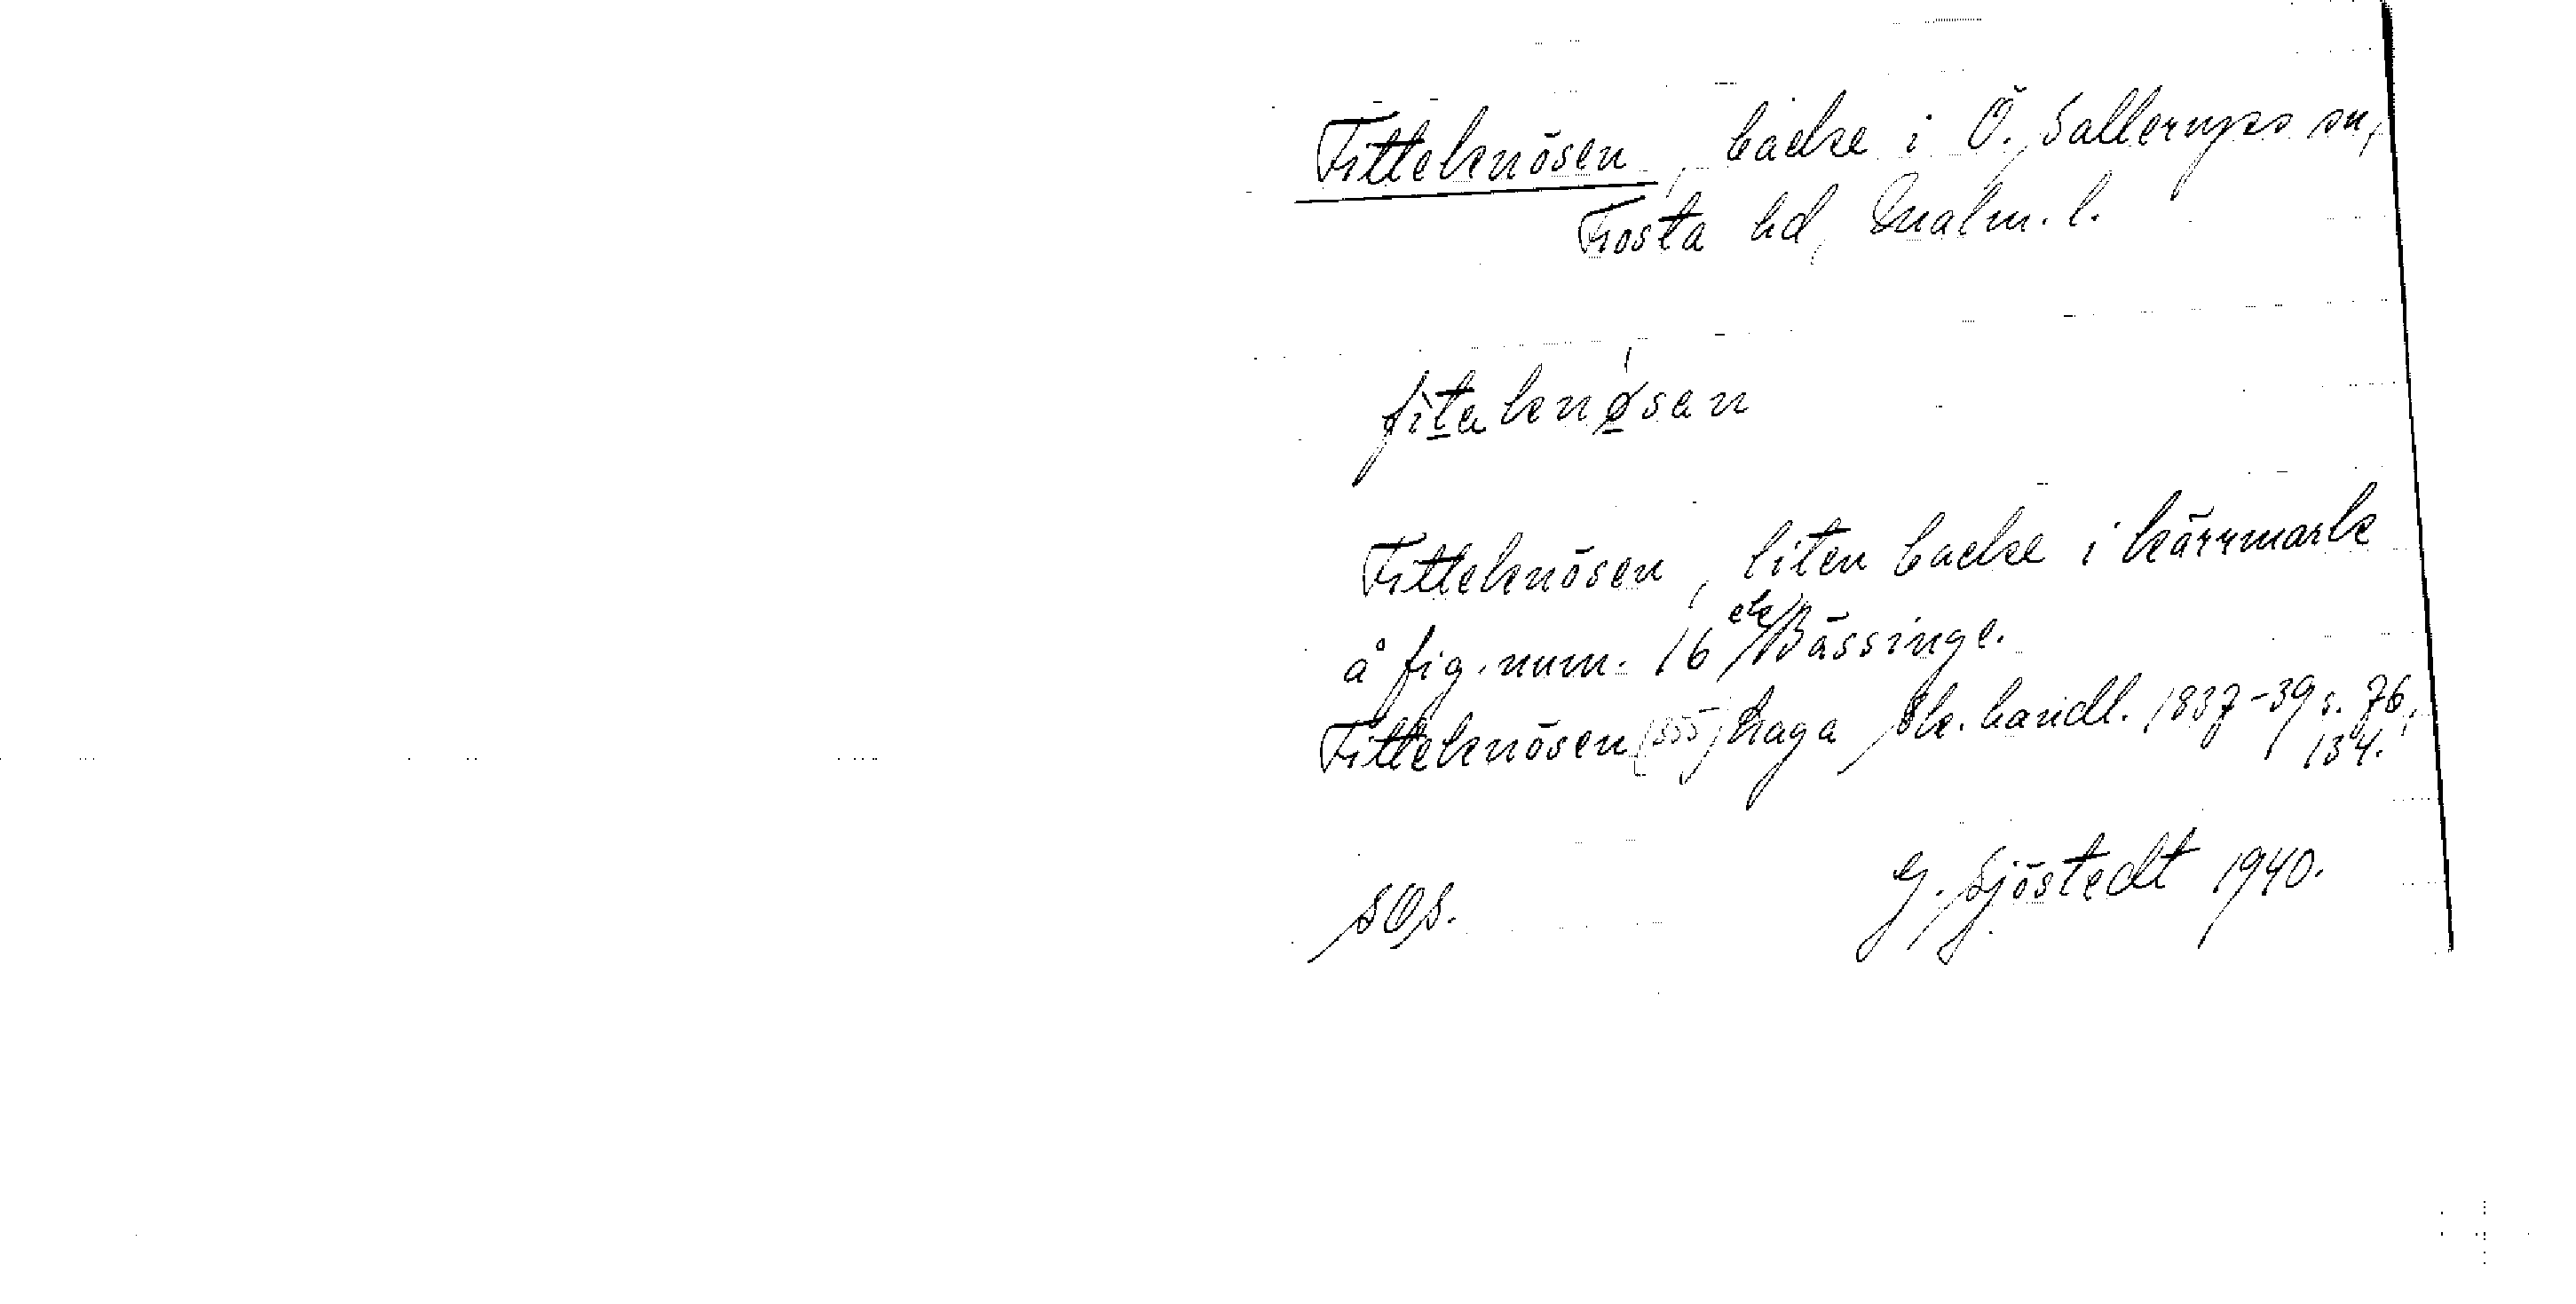 Fitteknösen, backe i Ö. Sallerups sn,
Frosta hd, Malm. l.
fitaknøsan
Fitteknösen, liten backe i kärrmark
å fig. num. 16 Bässinge.
Fitteknösen (355) haga Sk. handl. 1837-39 s. 76,
134.
SOS. G. Sjöstedt 1940.